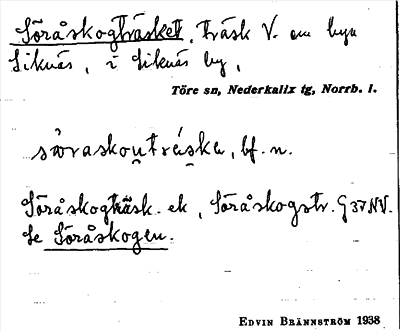 Söråskogträsket, träsk V. om byn
Siknäs, i Siknäs by,
Töre sn, Nederkalix tg, Norrb. l.
bf. n.
Söråskogträsk. ek, Söråskogstr. G 37 NV.
Se Söråskogen.
EDVIN BRÄNNSTRÖM 1938